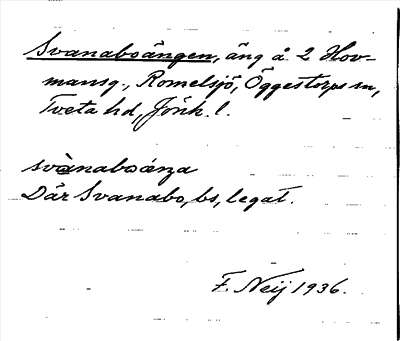 Svanaboängen, äng å 2 Hov-
mansg., Romelsjö, Öggestorps sn,
Tveta hd, Jönk. l.
svànaboánza
Där Svanabo, bs, legat.
F. Neij 1936.